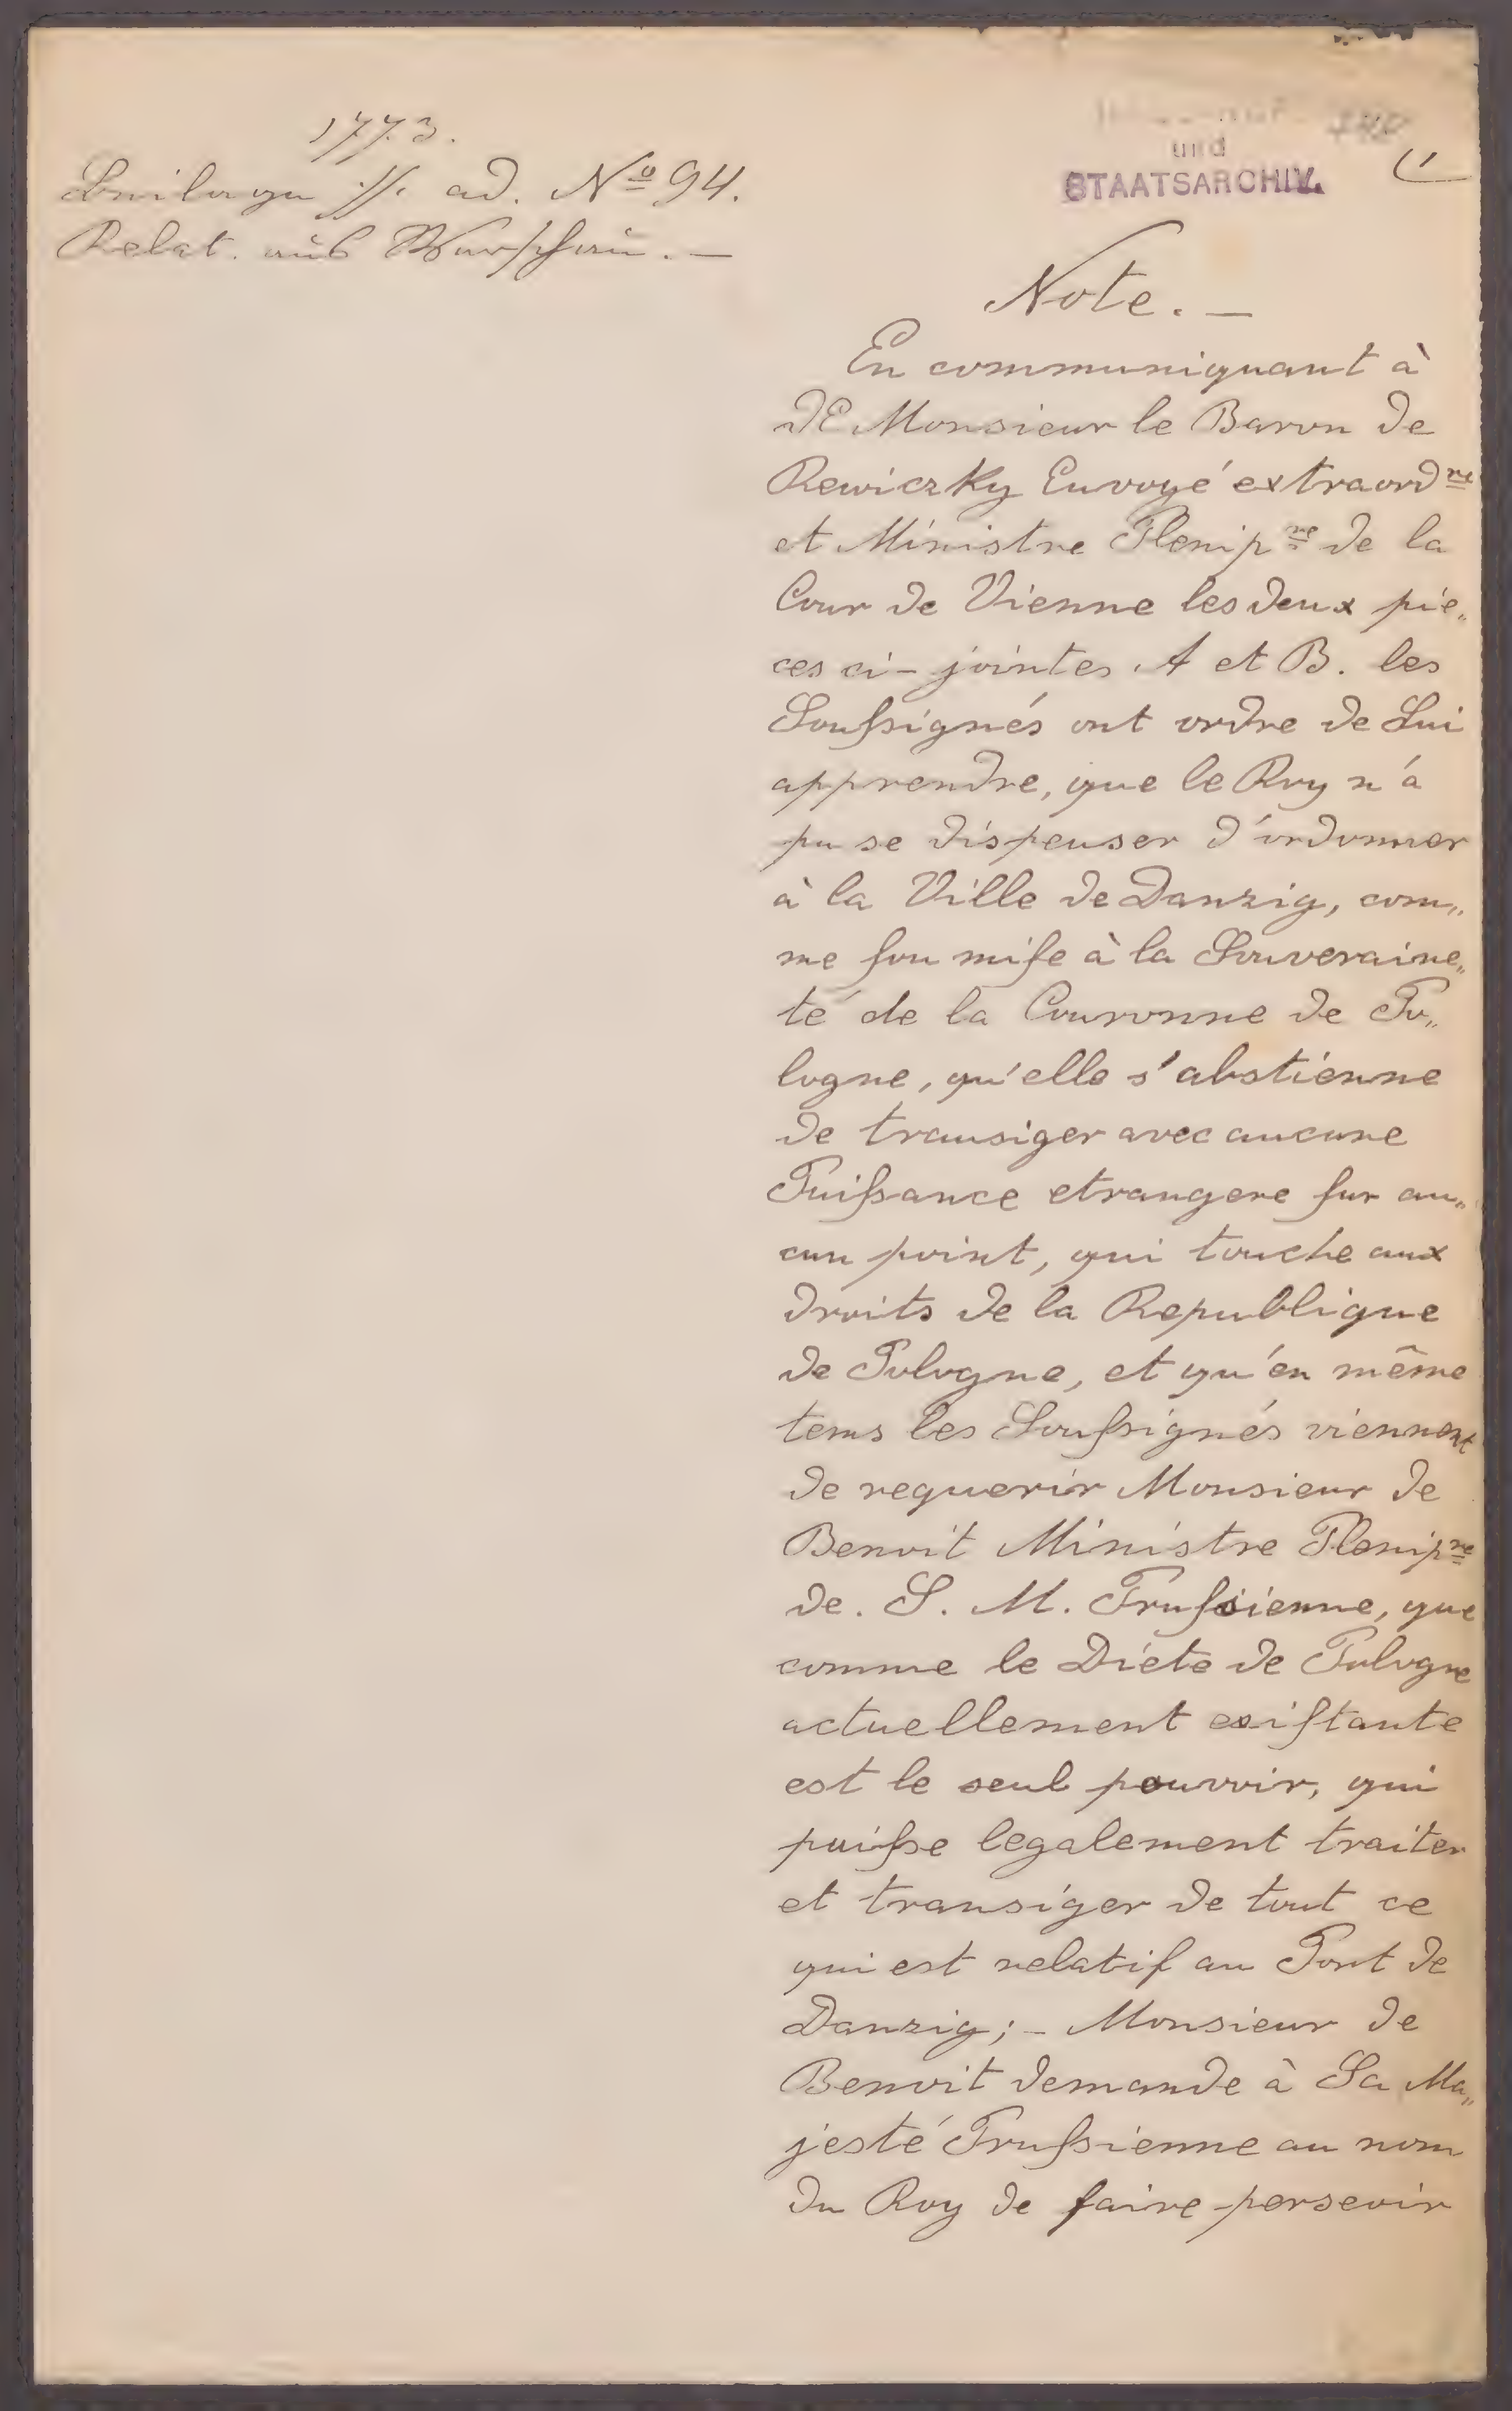 1773.
Beilage //. ad. Nº 94.
Relat. aus Warschau. —
und
STAATSARCHIV.
Note. —
En communiquant à
Monsieur le Baron de
Rewiczky Envoyé extraordre
et Ministre Plenipre de la
Cour de Vienne les deux pié„
ces ci-jointes A et B. les
Soussignés ont ordre de Lui
apprendre, que le Roy n'a
pu se dispenser d'ordonner
à la Ville de Danzig, com„
me soumise à la Souveraine„
té de la Couronne de Po„
logne, qu'elle s'abstienne
de transiger avec aucune
Puissance etrangere sur au„
cun point, qui touche aux
droits de la Republique
de Pologne, et qu'en même
tems les Soussignés viennent
de requerir Monsieur de
Benoit Ministre Plenipre
de. S. M. Prussienne, que
comme le Diéte de Pologne
actuellement existante
est le seul pouvoir, qui
puisse legalement traiter
et transiger de tout ce
qui est relatif au Port de
Danzig; – Monsieur de
Benoit demande à Sa Ma„
jesté Prussienne au nom
du Roy de faire persevir